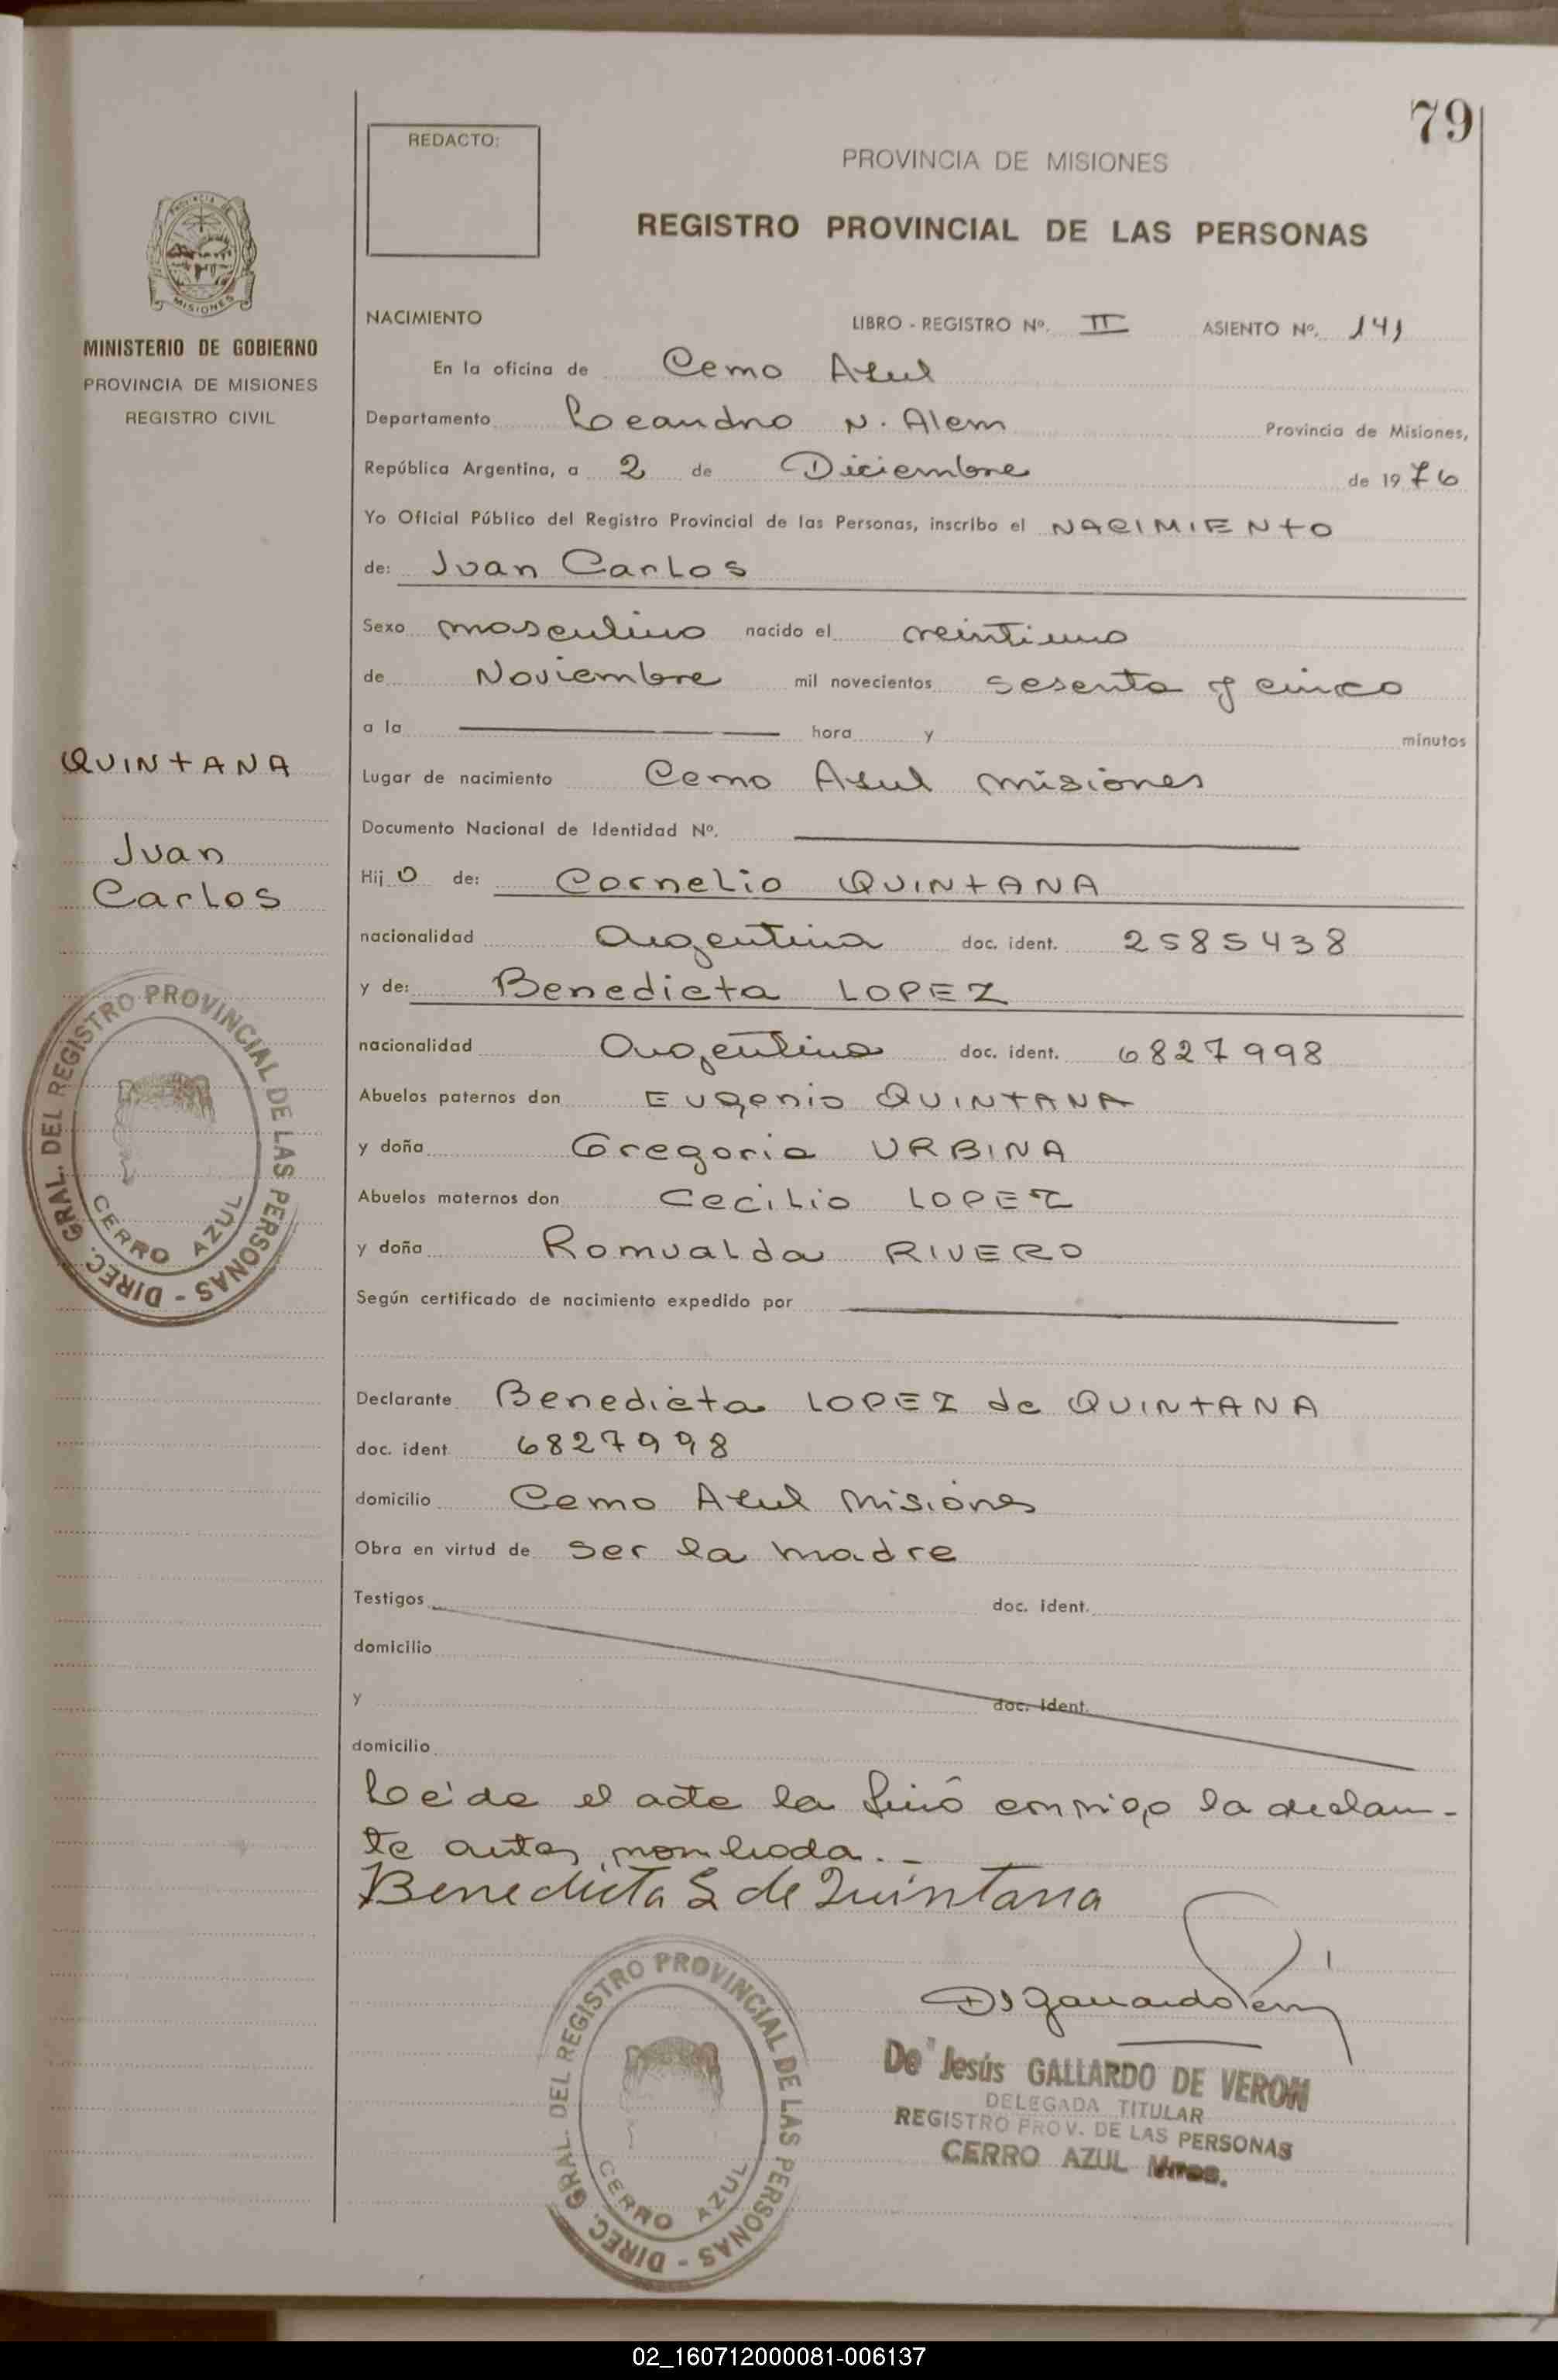 79
REDACTO:
PROVINCIA DE MISIONES
REGISTRO PROVINCIAL DE LAS PERSONAS
PROVINCIA DE
MISIONES
MINISTERIO DE GOBIERNO
PROVINCIA DE MISIONES
REGISTRO CIVIL
NACIMIENTO LIBRO - REGISTRO Nº. II ASIENTO Nº. 141
En la oficina de Cerro Azul
Departamento Leandro N. Alem Provincia de Misiones,
República Argentina, a 2 de Diciembre de 1976
Yo Oficial Público del Registro Provincial de las Personas, inscribo el NACIMIENTO
de: Juan Carlos
Sexo masculino nacido el veintiuno
de Noviembre mil novecientos sesenta y cinco
a la hora y minutos
Lugar de nacimiento Cerro Azul Misiones
Documento Nacional de Identidad Nº.
Hijo de: Cornelio QUINTANA
nacionalidad Argentina doc. ident. 2585438
y de: Benedicta LOPEZ
nacionalidad Argentina doc. ident. 6827998
Abuelos paternos don Eugenio QUINTANA
y doña Gregoria URBINA
Abuelos maternos don Cecilio LOPEZ
y doña Romualda RIVERO
Según certificado de nacimiento expedido por
Declarante Benedicta LOPEZ de QUINTANA
doc. ident 6827998
domicilio Cerro Azul Misiones
Obra en virtud de ser la madre
Testigos doc. ident.
domicilio
y doc. ident.
domicilio
Leída el acta la firmó conmigo la declaran-
te antes nombrada.-
Benedicta L de Quintana
QUINTANA
Juan
Carlos
DIREC. GRAL. DEL REGISTRO PROVINCIAL DE LAS PERSONAS -
CERRO AZUL
DIREC. GRAL. DEL REGISTRO PROVINCIAL DE LAS PERSONAS -
CERRO AZUL
De Jesús GALLARDO DE VERON
DELEGADA TITULAR
REGISTRO PROV. DE LAS PERSONAS
CERRO AZUL Mnes.
02_160712000081-006137